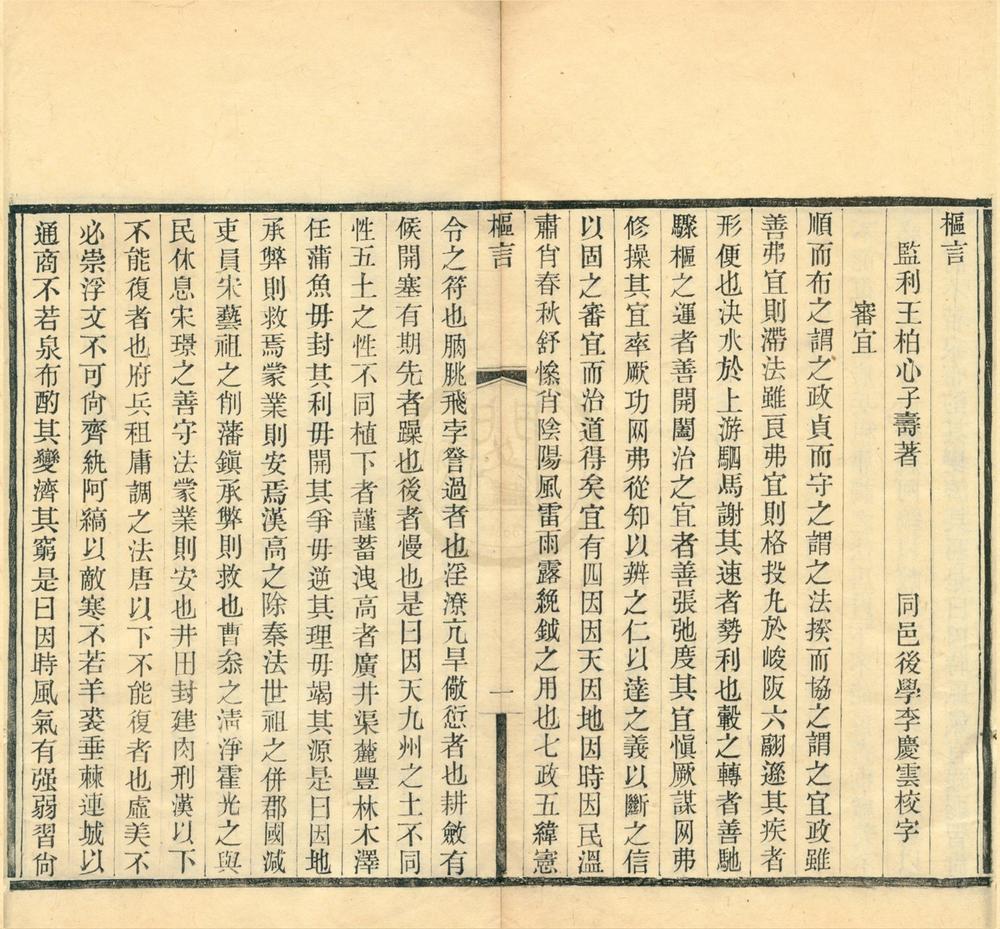 樞言
監利王柏心子壽著　同邑後學李慶雲校字
審宜
順而布之謂之政貞而守之謂之法揆而協之謂之宜政雖
善弗宜則滯法雖良弗宜則格投丸於峻阪六翮遜其疾者
形便也決水於上游駟馬謝其速者勢利也轂之轉者善馳
驟樞之運者善開闔治之宜者善張弛度其宜愼厥謀网弗
修操其宜率厥功网弗從知以辨之仁以達之義以斷之信
以固之審宜而治道得矣宜有四因因天因地因時因民溫
肅肖春秋舒慘肖陰陽風雷雨露絻鉞之用也七政五緯憲
樞言
一
令之符也朒朓飛孛詧過者也淫潦亢旱儆愆者也耕斂有
候開塞有期先者躁也後者慢也是曰因天九州之土不同
性五土之性不同植下者謹蓄洩高者廣井渠麓豐林木澤
任蒲魚毋封其利毋開其爭毋逆其理毋竭其源是曰因地
承弊則救焉蒙業則安焉漢高之除秦法世祖之併郡國減
吏員宋藝祖之削藩鎭承弊則救也曹叅之淸淨霍光之與
民休息宋璟之善守法蒙業則安也井田封建肉刑漢以下
不能復者也府兵租庸調之法唐以下不能復者也虛美不
必崇浮文不可尙齊紈阿縞以敵寒不若羊裘垂棘連城以
通商不若泉布酌其變濟其窮是曰因時風氣有强弱習尙